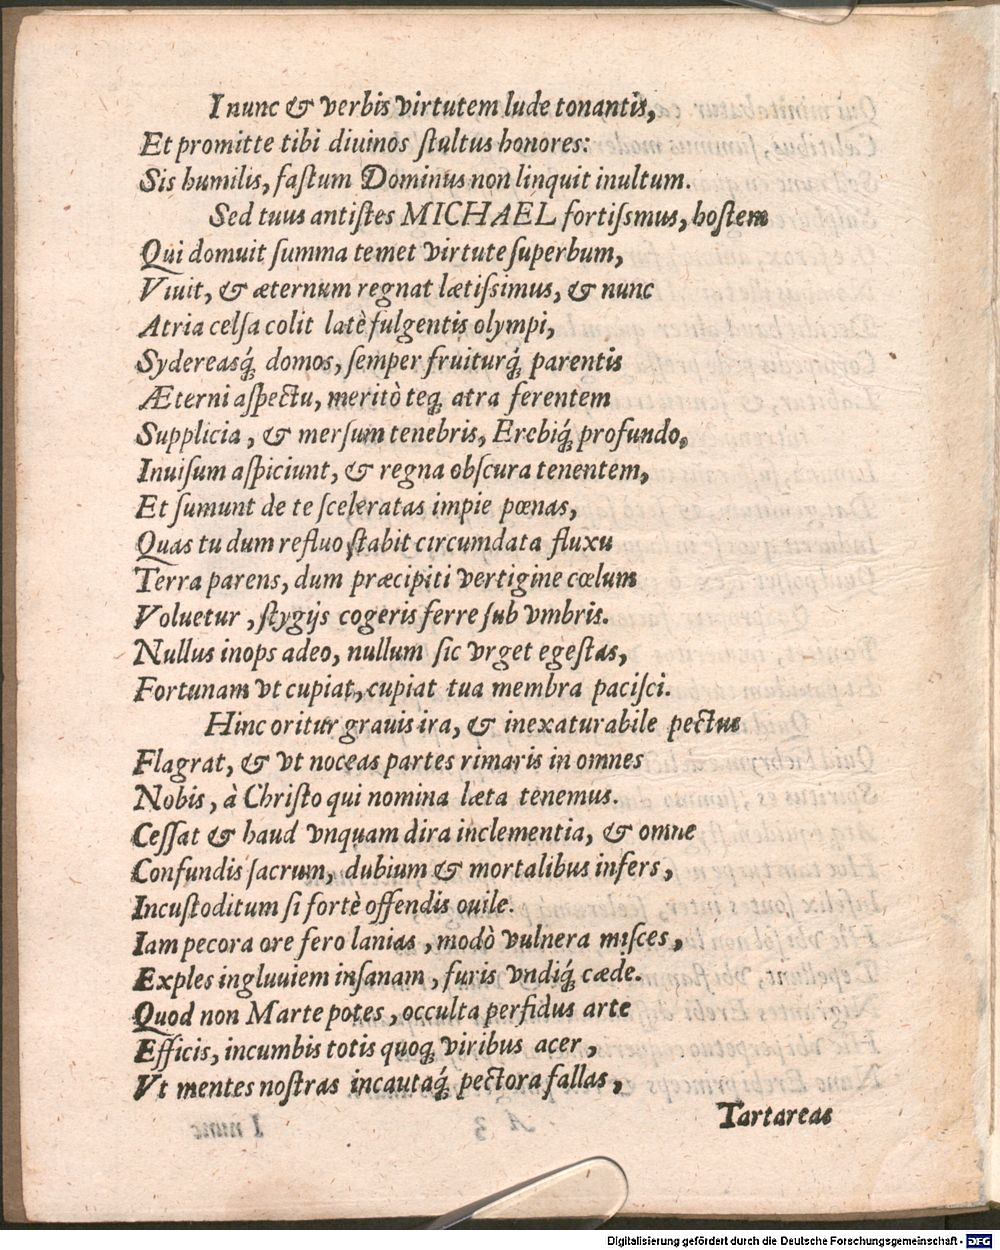 I nunc & verbis virtutem lude tonantis,
Et promitte tibi diuinos ſtultus honores:
Sis humilis, faſtum Dominus non linquit inultum.
Sed tuus antiſtes MICHAEL fortiſsmus, hoſtem
Qui domuit ſumma temet virtute ſuperbum,
Viuit, & æternum regnat lætiſsimus, & nunc
Atria celſa colit latè fulgentis olympi,
Sydereasq́; domos, ſemper fruiturq́; parentis
Æterni aſpectu, meritò teq; atra ferentem
Supplicia, & merſum tenebris, Erebiq́; profundo,
Inuiſum aſpiciunt, & regna obſcura tenentem,
Et ſumunt de te ſceleratas impie pœnas,
Quas tu dum refluo ſtabit circumdata fluxu
Terra parens, dum præcipiti vertigine cœlum
Voluetur, ſtygijs cogeris ferre ſub vmbris.
Nullus inops adeo, nullum ſic vrget egeſtas,
Fortunam vt cupiat, cupiat tua membra paciſci.
Hinc oritur grauis ira, & inexaturabile pectus
Flagrat, & vt noceas partes rimaris in omnes
Nobis, à Chriſto qui nomina læta tenemus.
Ceſſat & haud vnquam dira inclementia, & omne
Confundis ſacrum, dubium & mortalibus infers,
Incuſtoditum ſi fortè offendis ouile.
Iam pecora ore fero lanias, modò vulnera miſces,
Exples ingluuiem inſanam, furis vndiq́; cæde.
Quod non Marte potes, occulta perfidus arte
Efficis, incumbis totis quoq; viribus acer,
Vt mentes noſtras incautaq́; pectora fallas,
Tartareas
I nunc
A 3
Digitalisierung gefördert durch die Deutsche Forschungsgemeinschaft - DFG